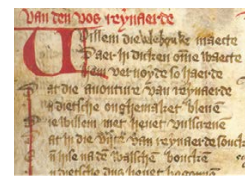 van den vos reynaerde
Willem die vele bouke maecte
Daer hi dicken omme waecte
hem vernoyde so haerde
at die avonture van reynaerde
dietsche onghemaket bleven
willem niet hevet vulscreven
at hi die vijte van reynaerde souck
hise na den walschen boucken
dietsche dus hevet begonnen